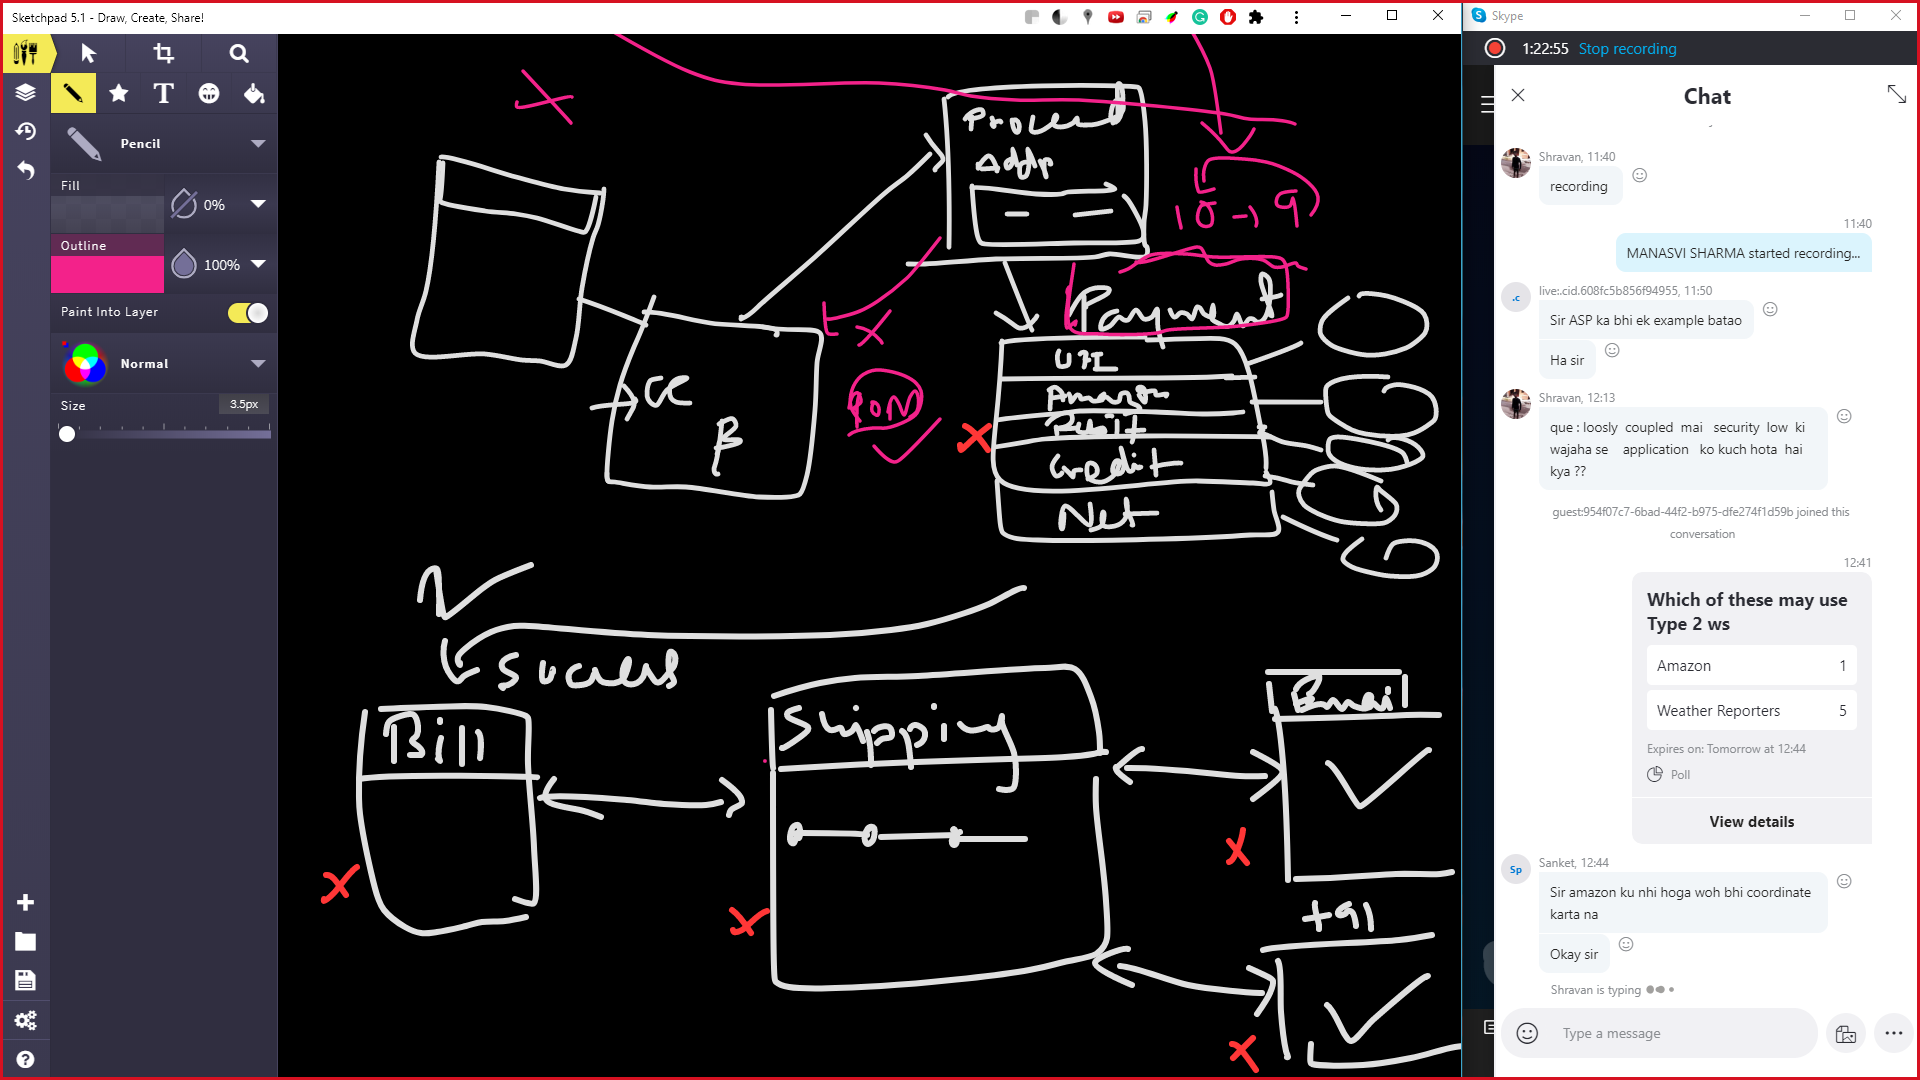 Sketchpad 5.1 - Draw, Create, Share!
Pencil
Fill
0%
Outline
100%
Paint Into Layer
Normal
Size
3.5px
Proceed
Payment
UPI
Amazon
Debit
Credit
Net
COD
Success
Bill
Shipping
Email
+91
Skype
1:22:55 Stop recording
Chat
Shravan, 11:40
recording
11:40
MANASVI SHARMA started recording...
.c
live:.cid.608fc5b856f94955, 11:50
Sir ASP ka bhi ek example batao
Ha sir
Shravan, 12:13
que : loosly coupled mai security low ki
wajaha se application ko kuch hota hai
kya ??
guest:954f07c7-6bad-44f2-b975-dfe274f1d59b joined this
conversation
12:41
Which of these may use
Type 2 ws
Amazon 1
Weather Reporters 5
Expires on: Tomorrow at 12:44
Poll
View details
Sp
Sanket, 12:44
Sir amazon ku nhi hoga woh bhi coordinate
karta na
Okay sir
Shravan is typing
Type a message